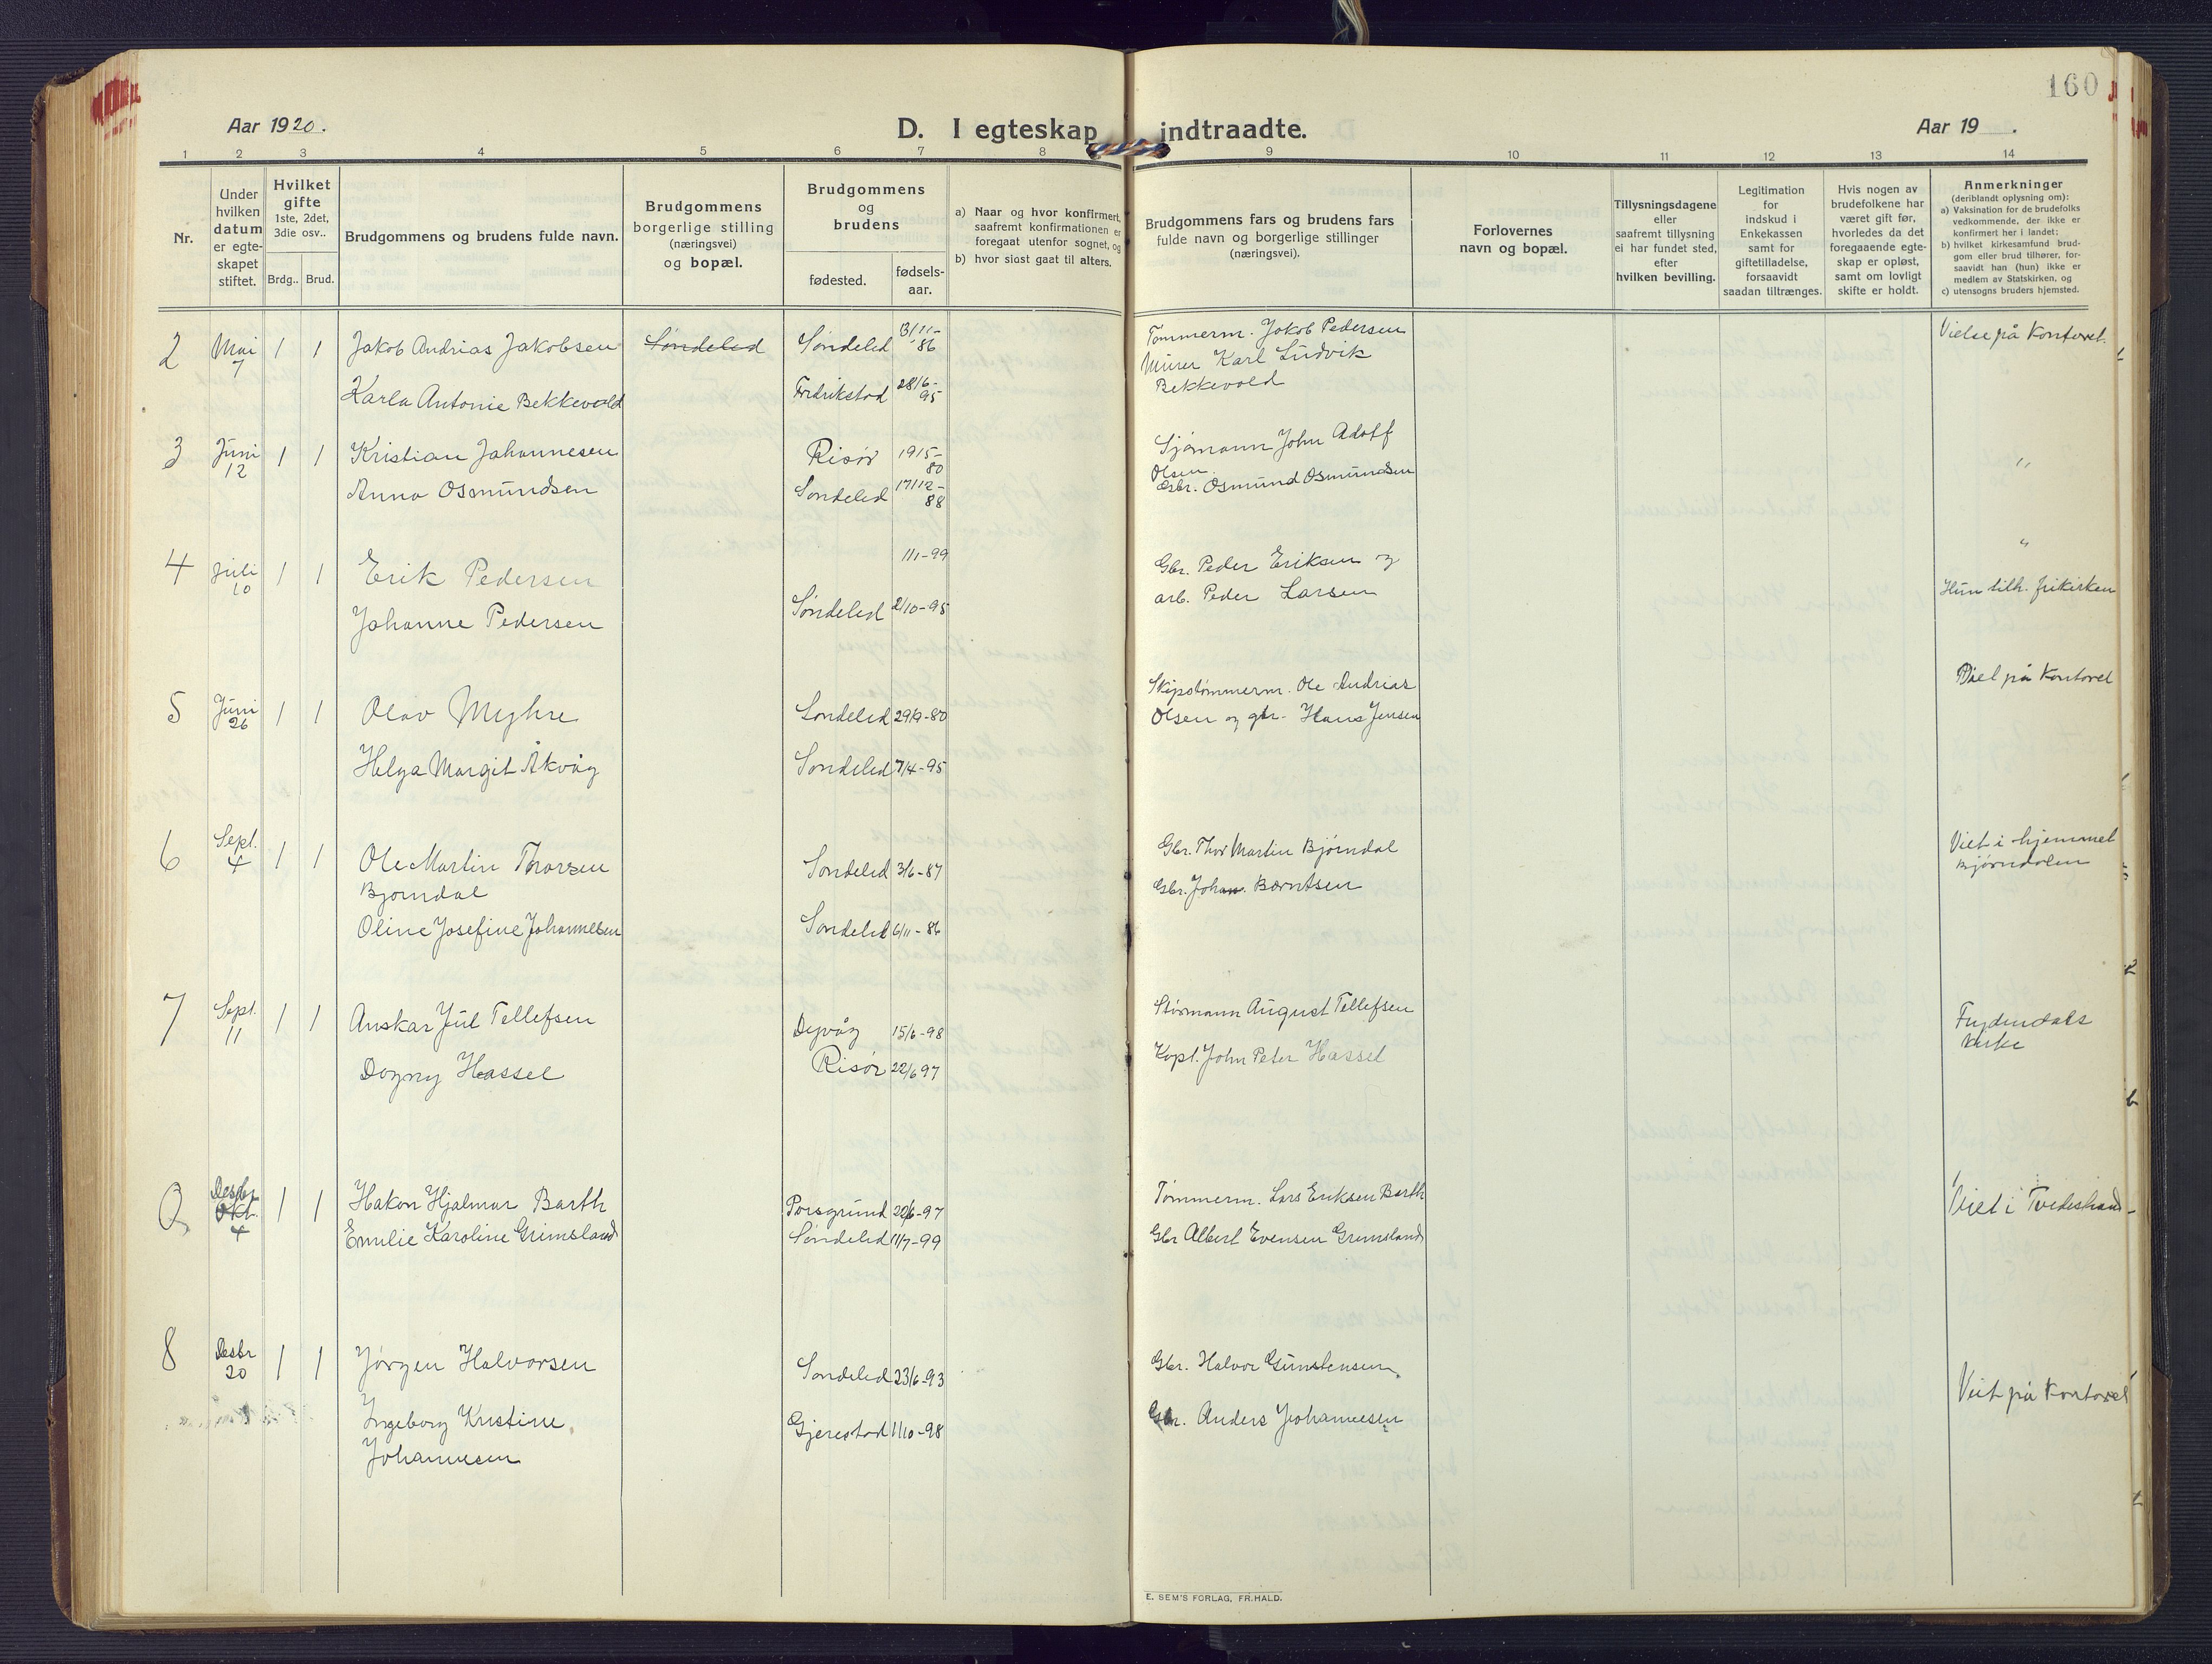 160
Aar 1920.
D. I egteskap indtraadte.
Aar 19 .
1 2 3 4 5 6 7 8 9 10 11 12 13 14
Nr.
Under
hvilken
datum
er egte-
skapet
stiftet.
Hvilket
gifte
1ste, 2det,
3die osv..
Brdg.. Brud.
Brudgommens og brudens fulde navn.
Brudgommens
borgerlige stilling
(næringsvei)
og bopæl.
Brudgommens
og
brudens
fødested.
fødsels-
aar.
a) Naar og hvor konfirmert,
saafremt konfirmationen er
foregaat utenfor sognet, og
b) hvor sidst gaat til alters.
Brudgommens fars og brudens fars
fulde navn og borgerlige stillinger
(næringsvei).
Forlovernes
navn og bopæl.
Tillysningsdagene
eller
saafremt tillysning
ei har fundet sted,
efter
hvilken bevilling.
Legitimation
for
indskud i
Enkekassen
samt for
giftetilladelse,
forsaavidt
saadan tiltrænges.
Hvis nogen av
brudefolkene har
været gift før,
hvorledes da det
foregaaende egte-
skap er opløst,
samt om lovligt
skifte er holdt.
Anmerkninger
(deriblandt oplysning om):
a) Vaksination for de brudefolks
vedkommende, der ikke er
konfirmert her i landet:
b) hvilket kirkesamfund brud-
gom eller brud tilhører, for-
saavidt han (hun) ikke er
medlem av Statskirken, og
c) utensogns bruders hjemsted.
2 Mai 7 1 1 Jakob Andrias Jakobsen Søndeled Søndeled 13/11-86 Tømmerm. Jakob Pedersen Vielse på kontoret.
Karla Antonie Bekkevold Fredrikstad 28/6-95 Murer Karl Ludvik
Bekkevold
3 Juni 12 1 1 Kristian Johannesen Risør 19/5-80 Sjømann John Adolf "
Olsen.
Anna Osmundsen Søndeled 17/12-88 Gbr. Osmund Osmundsen
4 Juli 10 1 1 Erik Pedersen 1/1-99 Gbr. Peder Eriksen og "
Johanne Pedersen Søndeled 2/10-95 arb. Peder Larsen Hun tilh. frikirken
5 Juni 26 1 1 Olav Myhre Søndeled 29/9-80 Skipstømmerm. Ole Andrias Viet på kontoret
Helga Margit Åkvåg Søndeled 7/4-95 Olsen og gbr. Hans Jensen
6 Sept. 4 1 1 Ole Martin Thorsen Søndeled 3/6-87 Gbr. Thor Martin Bjørndal Viet i hjemmet
Bjørndal Bjørndalen
Oline Josefine Johannesen Søndeled 6/11-86 Gbr. Johan Berntsen
7 Sept. 11 1 1 Anskar Jul Tellefsen Dypvåg 15/6-98 Styrmann August Tellefsen Frydendals
kirke
Dagny Hassel Risør 22/6 97 Kapt. John Peter Hassel
Desbr. Okt. 4 1 1 Hakon Hjalmar Barth Porsgrund 20/6-97 Tømmerm. Lars Eriksen Barth Viet i Tvedestrand
Emilie Karoline Grimsland Søndeled 11/7-99 Gbr Albert Evensen Grimsland
8 Desbr 20 1 1 Jørgen Halvorsen Søndeled 23/6-93 Gbr. Halvor Gunstensen Viet på kontoret
Ingeborg Kristine Gjerestad 1/10-98 Gbr. Anders Johannesen
Johannesen
E. SEM'S FORLAG, FR.HALD.